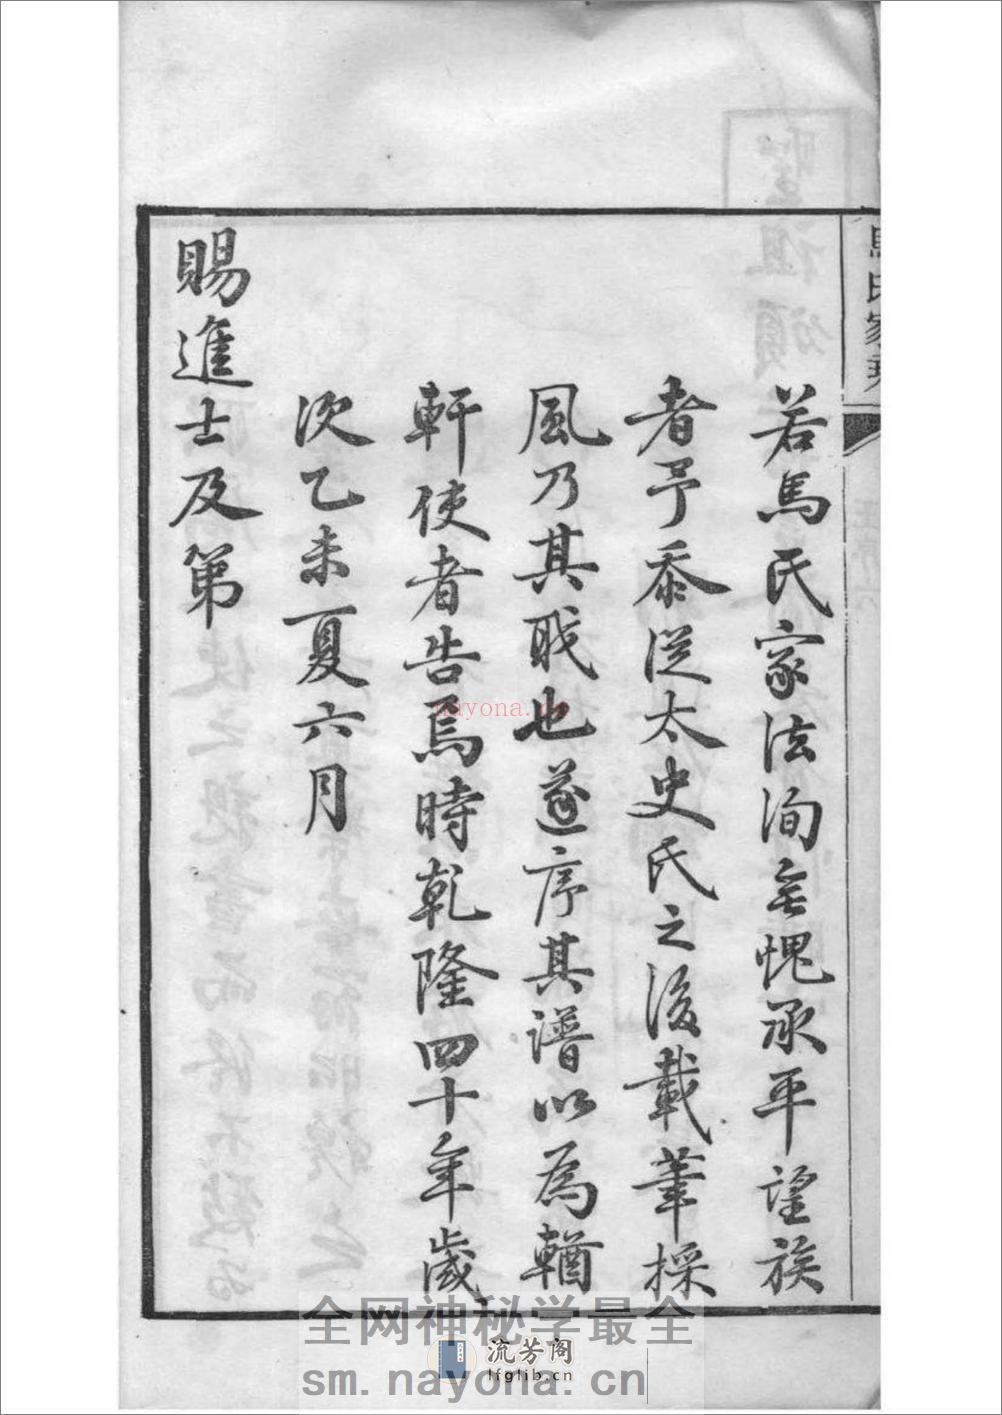 馬氏家乘
若馬氏家法洵無愧承平望族
者予忝從太史氏之後載筆採
風乃其職也遂序其譜以為輶
軒使者告焉時乾隆四十年歲
次乙未夏六月
賜進士及第
nayona.cn
全网神秘学最全
流芳阁
lfglib.cn
sm.nayona.cn